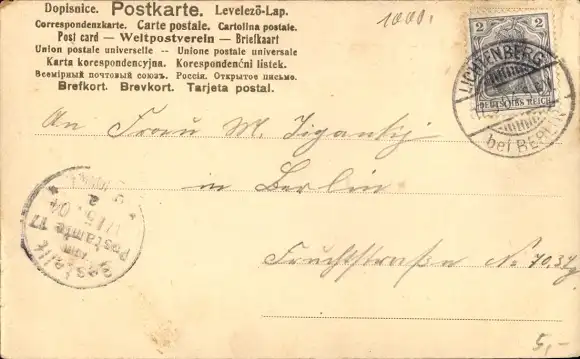 Dopisnice. Postkarte. Levelező-Lap.
Correspondenzkarte. Carte postale. Cartolina postale.
Post card — Weltpostverein — Briefkaart
Union postale universelle — Unione postale universale
Karta korespondencyjna. Korespondenćni listek.
Всемірный почтовый союзъ. Россія. Открытое письмо.
Brefkort. Brevkort. Tarjeta postal.
1000.
2 2
DEUTSCHES REICH
LICHTENBERG
bei BERLIN
An Frau M.
in Berlin
Postamte 17
Fruchtstraße No 70,
5,-